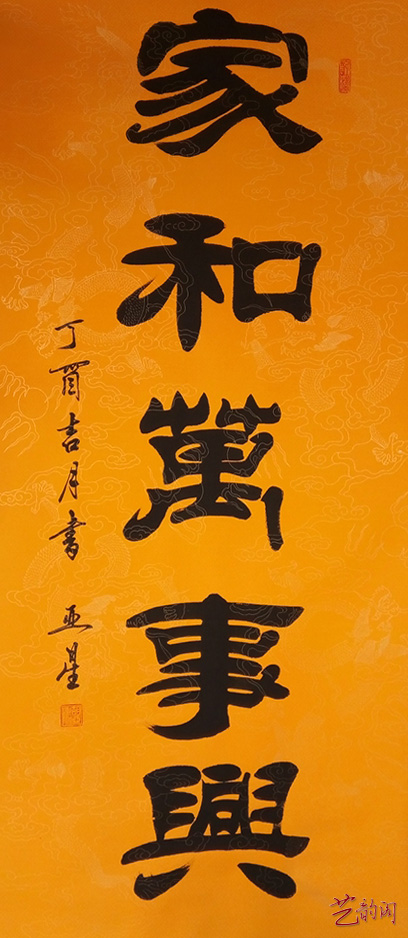 家和萬事興
丁酉吉月書 亚星
艺韵阁